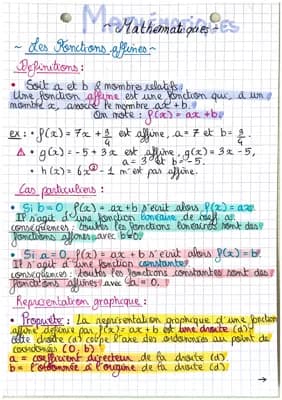 Mathématiques
~ Mathématiques ~
~ Les Fonctions affines ~
Définitions :
• Soit a et b 2 nombres relatifs.
Une fonction affine est une fonction qui, à un
nombre x, associe le nombre ax + b.
On note : f(x) = ax + b
ex : • f(x) = 7x + 3/4 est affine, a = 7 et b = 3/4.
⚠ • g(x) = -5 + 3x est affine, g(x) = 3x - 5,
a = 3 et b = -5.
• h(x) = 6x² - 1 n'est pas affine.
Cas particuliers :
• Si b = 0, f(x) = ax + b s'écrit alors f(x) = ax.
Il s'agit d'une fonction linéaire de coeff a.
conséquences : toutes les fonctions linéaires sont des
fonctions affines avec b = 0.
• Si a = 0, f(x) = ax + b s'écrit alors f(x) = b.
Il s'agit d'une fonction constante.
conséquences : toutes les fonctions constantes sont des
fonctions affines avec a = 0.
Représentation graphique :
• Propriété : La représentation graphique d'une fonction
affine définie par f(x) = ax + b est une droite (d).
Cette droite (d) coupe l'axe des ordonnées au point de
coordonnées (0, b)
a = coefficient directeur de la droite (d)
b = l'ordonnée à l'origine de la droite (d)
→